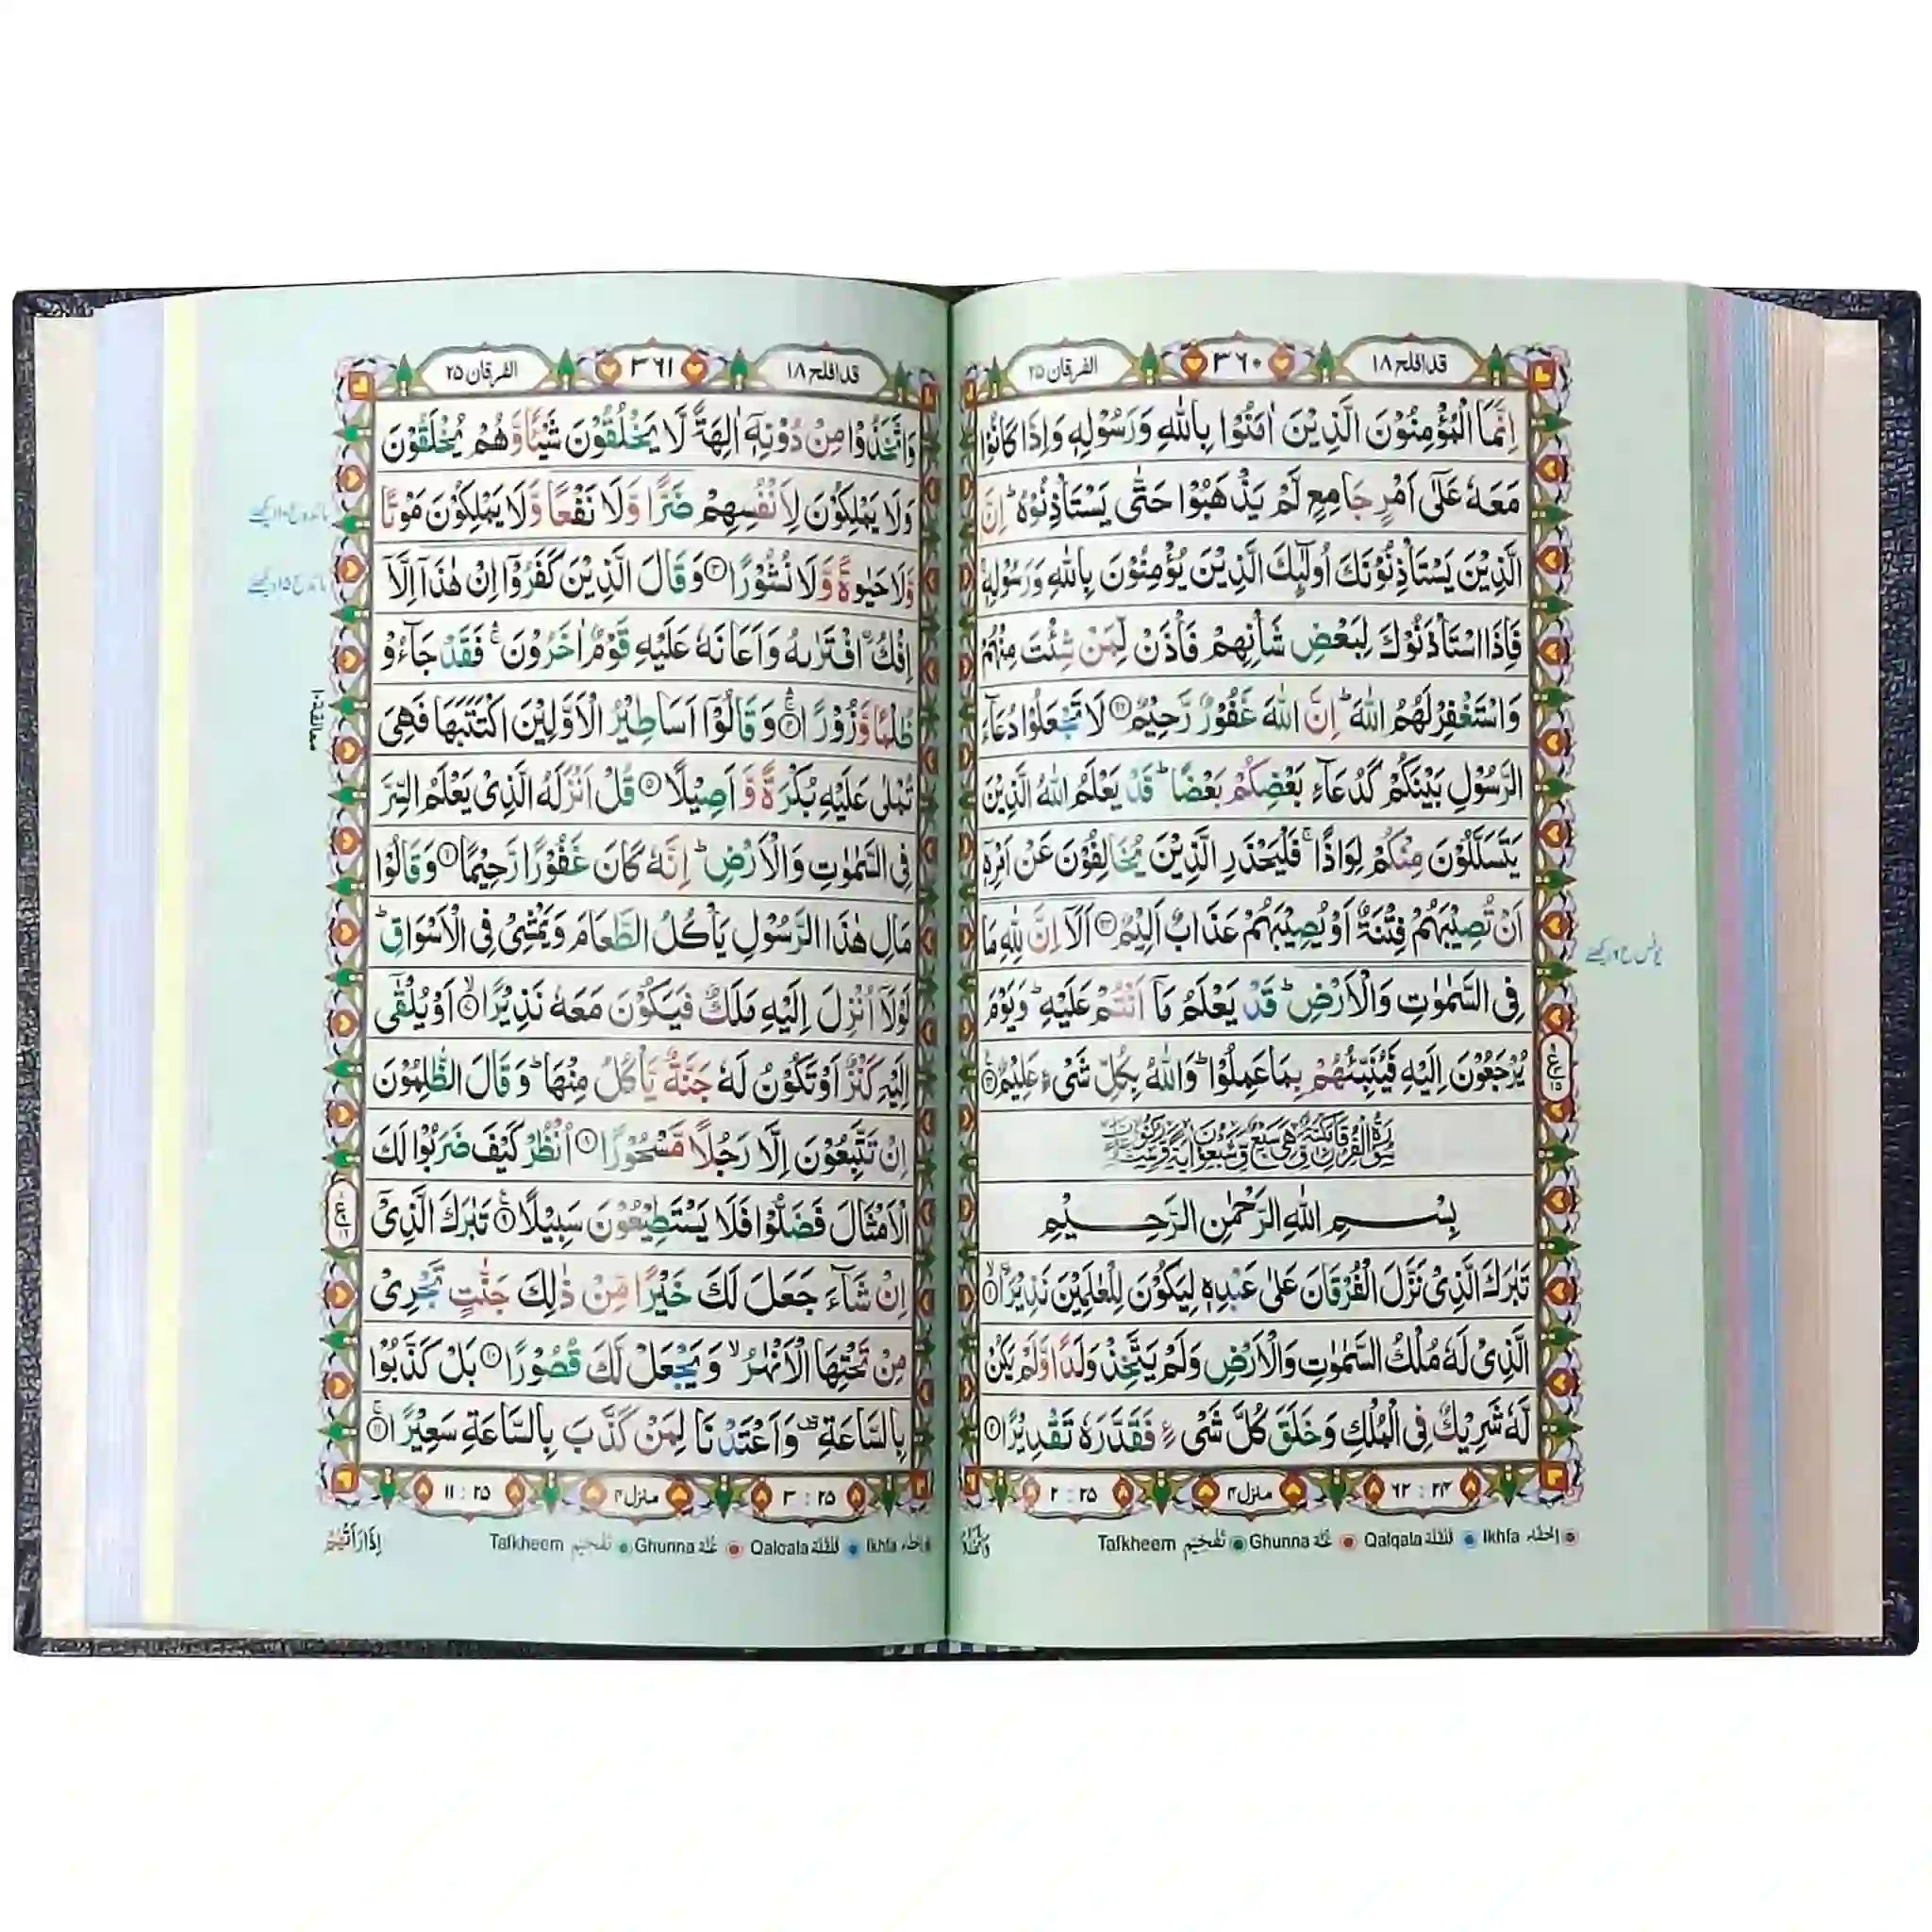 قد افلح ١٨
٣٦٠
الفرقان ٢٥
اِنَّمَا الْمُؤْمِنُوْنَ الَّذِيْنَ اٰمَنُوْا بِاللّٰهِ وَرَسُوْلِهٖ وَاِذَا كَانُوْا
مَعَهٗ عَلٰۤى اَمْرٍ جَامِعٍ لَّمْ يَذْهَبُوْا حَتّٰى يَسْتَاْذِنُوْهُ ؕ اِنَّ
الَّذِيْنَ يَسْتَاْذِنُوْنَكَ اُولٰٓئِكَ الَّذِيْنَ يُؤْمِنُوْنَ بِاللّٰهِ وَرَسُوْلِهٖ ۚ
فَاِذَا اسْتَاْذَنُوْكَ لِبَعْضِ شَاْنِهِمْ فَاْذَنْ لِّمَنْ شِئْتَ مِنْهُمْ
وَاسْتَغْفِرْ لَهُمُ اللّٰهَ ؕ اِنَّ اللّٰهَ غَفُوْرٌ رَّحِيْمٌ ۝٦٢ لَا تَجْعَلُوْا دُعَآءَ
الرَّسُوْلِ بَيْنَكُمْ كَدُعَآءِ بَعْضِكُمْ بَعْضًا ؕ قَدْ يَعْلَمُ اللّٰهُ الَّذِيْنَ
يَتَسَلَّلُوْنَ مِنْكُمْ لِوَاذًا ۚ فَلْيَحْذَرِ الَّذِيْنَ يُخَالِفُوْنَ عَنْ اَمْرِهٖۤ
اَنْ تُصِيْبَهُمْ فِتْنَةٌ اَوْ يُصِيْبَهُمْ عَذَابٌ اَلِيْمٌ ۝٦٣ اَلَاۤ اِنَّ لِلّٰهِ مَا
فِى السَّمٰوٰتِ وَالْاَرْضِ ؕ قَدْ يَعْلَمُ مَاۤ اَنْتُمْ عَلَيْهِ ؕ وَيَوْمَ
يُرْجَعُوْنَ اِلَيْهِ فَيُنَبِّئُهُمْ بِمَا عَمِلُوْا ؕ وَاللّٰهُ بِكُلِّ شَىْءٍ عَلِيْمٌ ۝٦٤
بِسْمِ اللّٰهِ الرَّحْمٰنِ الرَّحِيْمِ
تَبٰرَكَ الَّذِىْ نَزَّلَ الْفُرْقَانَ عَلٰى عَبْدِهٖ لِيَكُوْنَ لِلْعٰلَمِيْنَ نَذِيْرًا ۝١
الَّذِىْ لَهٗ مُلْكُ السَّمٰوٰتِ وَالْاَرْضِ وَلَمْ يَتَّخِذْ وَلَدًا وَّلَمْ يَكُنْ
لَّهٗ شَرِيْكٌ فِى الْمُلْكِ وَخَلَقَ كُلَّ شَىْءٍ فَقَدَّرَهٗ تَقْدِيْرًا ۝٢
٢٤ : ٦٢
منزل ٤
٢٥ : ٢
اخفاء Ikhfa قلقلة Qalqala غنّة Ghunna تفخيم Tafkheem
قد افلح ١٨
٣٦١
الفرقان ٢٥
وَاتَّخَذُوْا مِنْ دُوْنِهٖۤ اٰلِهَةً لَّا يَخْلُقُوْنَ شَيْئًا وَّهُمْ يُخْلَقُوْنَ
وَلَا يَمْلِكُوْنَ لِاَنْفُسِهِمْ ضَرًّا وَّلَا نَفْعًا وَّلَا يَمْلِكُوْنَ مَوْتًا
وَّلَا حَيٰوةً وَّلَا نُشُوْرًا ۝٣ وَقَالَ الَّذِيْنَ كَفَرُوْۤا اِنْ هٰذَاۤ اِلَّاۤ
اِفْكُ ۨافْتَرٰىهُ وَاَعَانَهٗ عَلَيْهِ قَوْمٌ اٰخَرُوْنَ ۛۚ فَقَدْ جَآءُوْ
ظُلْمًا وَّزُوْرًا ۝٤ۛۚ وَقَالُوْۤا اَسَاطِيْرُ الْاَوَّلِيْنَ اكْتَتَبَهَا فَهِىَ
تُمْلٰى عَلَيْهِ بُكْرَةً وَّاَصِيْلًا ۝٥ قُلْ اَنْزَلَهُ الَّذِىْ يَعْلَمُ السِّرَّ
فِى السَّمٰوٰتِ وَالْاَرْضِ ؕ اِنَّهٗ كَانَ غَفُوْرًا رَّحِيْمًا ۝٦ وَقَالُوْا
مَالِ هٰذَا الرَّسُوْلِ يَاْكُلُ الطَّعَامَ وَيَمْشِىْ فِى الْاَسْوَاقِ ؕ
لَوْلَاۤ اُنْزِلَ اِلَيْهِ مَلَكٌ فَيَكُوْنَ مَعَهٗ نَذِيْرًا ۝٧ۙ اَوْ يُلْقٰۤى
اِلَيْهِ كَنْزٌ اَوْ تَكُوْنُ لَهٗ جَنَّةٌ يَّاْكُلُ مِنْهَا ؕ وَقَالَ الظّٰلِمُوْنَ
اِنْ تَتَّبِعُوْنَ اِلَّا رَجُلًا مَّسْحُوْرًا ۝٨ اُنْظُرْ كَيْفَ ضَرَبُوْا لَكَ
الْاَمْثَالَ فَضَلُّوْا فَلَا يَسْتَطِيْعُوْنَ سَبِيْلًا ۝٩ تَبٰرَكَ الَّذِىْۤ
اِنْ شَآءَ جَعَلَ لَكَ خَيْرًا مِّنْ ذٰلِكَ جَنّٰتٍ تَجْرِىْ
مِنْ تَحْتِهَا الْاَنْهٰرُ ۙ وَيَجْعَلْ لَّكَ قُصُوْرًا ۝١٠ بَلْ كَذَّبُوْا
بِالسَّاعَةِ وَاَعْتَدْنَا لِمَنْ كَذَّبَ بِالسَّاعَةِ سَعِيْرًا ۝١١
٢٥ : ٣
منزل ٤
٢٥ : ١١
اخفاء Ikhfa قلقلة Qalqala غنّة Ghunna تفخيم Tafkheem
اِذَا رَاَتْهُمْ
معانقة ١٠